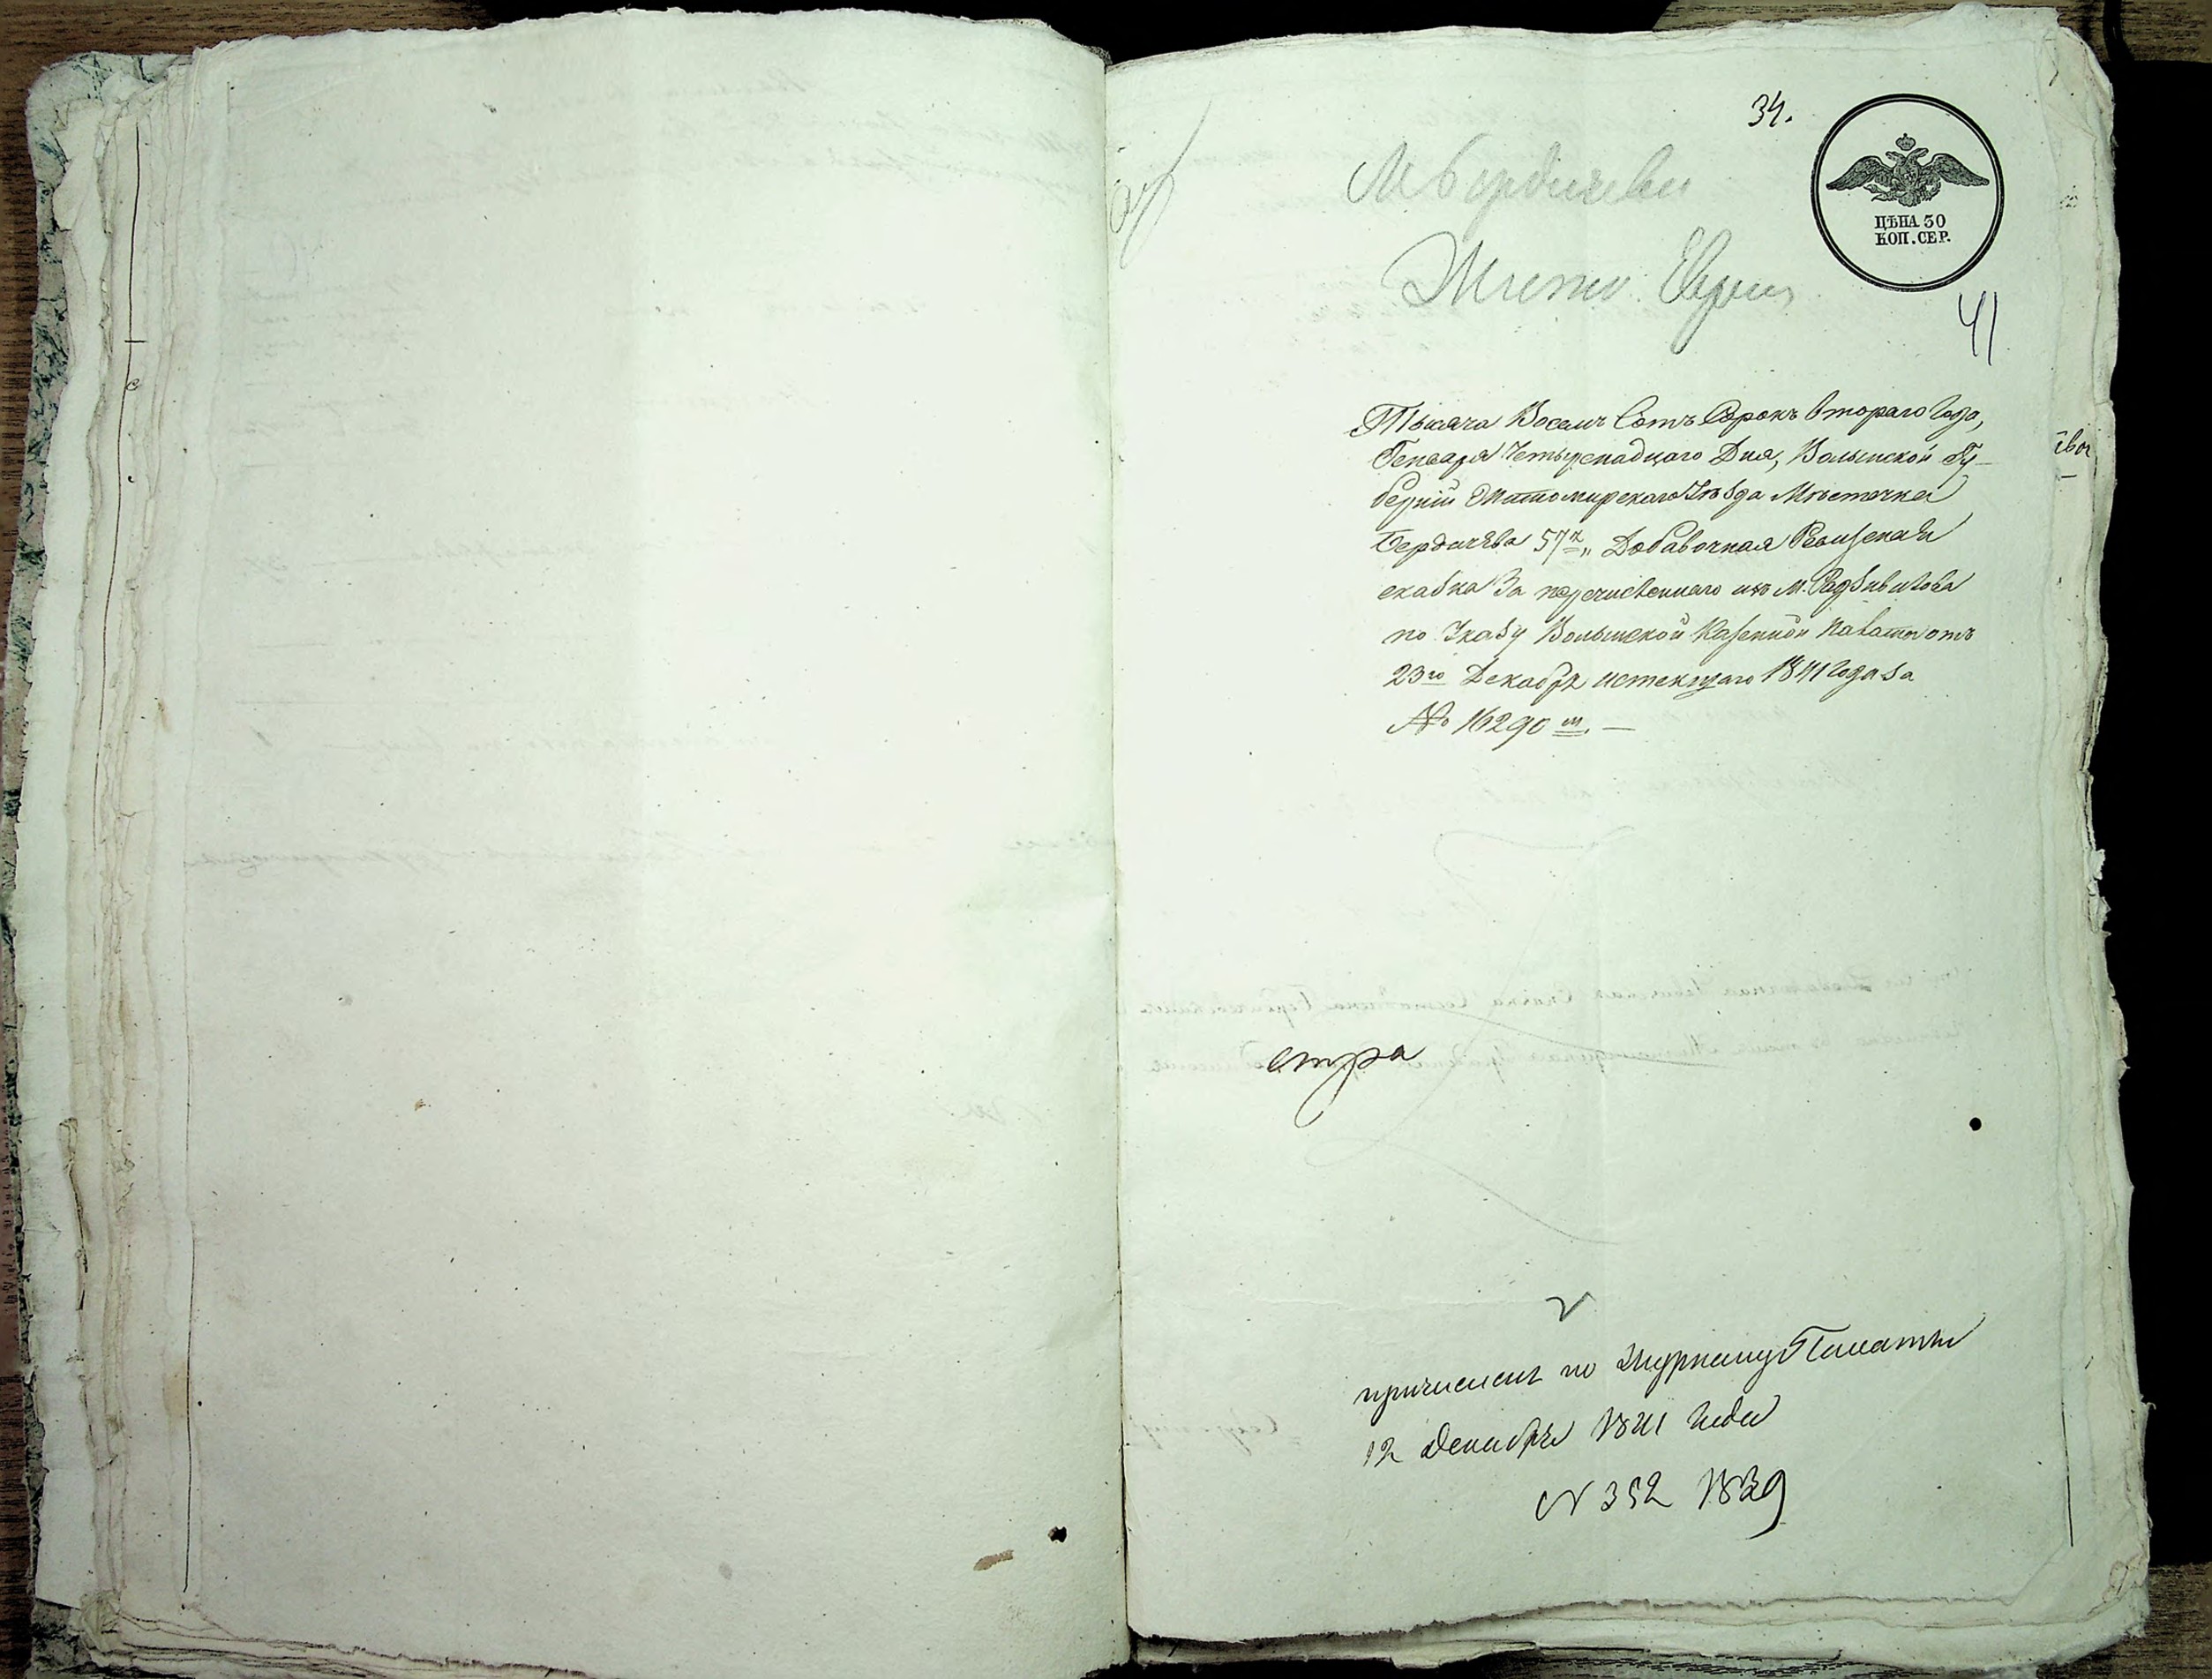 34.
М Бердичева
ЦѢНА 30
КОП. СЕР.
Мѣщан. Евреи
41
Тысяча Восемь Сотъ Сорокъ втораго Года,
Генваря Четырнадцаго Дня, Волынской Гу-
берніи Житомирскаго Уѣзда Мѣстечка
Бердичева 57я „ Добавочная Ревизская
сказка За перечисленнаго изъ М. Радзивилова
по Указу Волынской Казенной Палаты отъ
23го Декабря истекшаго 1841 Года за
№ 16290 м. —
причислен по Журналу Палаты
12 Декабря 1841 Года
N 352 1839